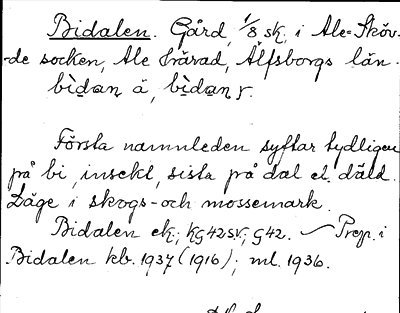 Bidalen. Gård, 1/8 sk, i Ale-Sköv-
-de socken, Ale härad, Älfsborgs län.
bìdaṇ å, bìdaṇ r.
Första namnleden syftar tydligen
på bi, insekt, sista på dal el. däld.
Läge i skogs- och mossemark.
Bidalen ek; KG 42 sv; G 42. — Prep. i
Bidalen kb. 1937 (1916); ml. 1936.